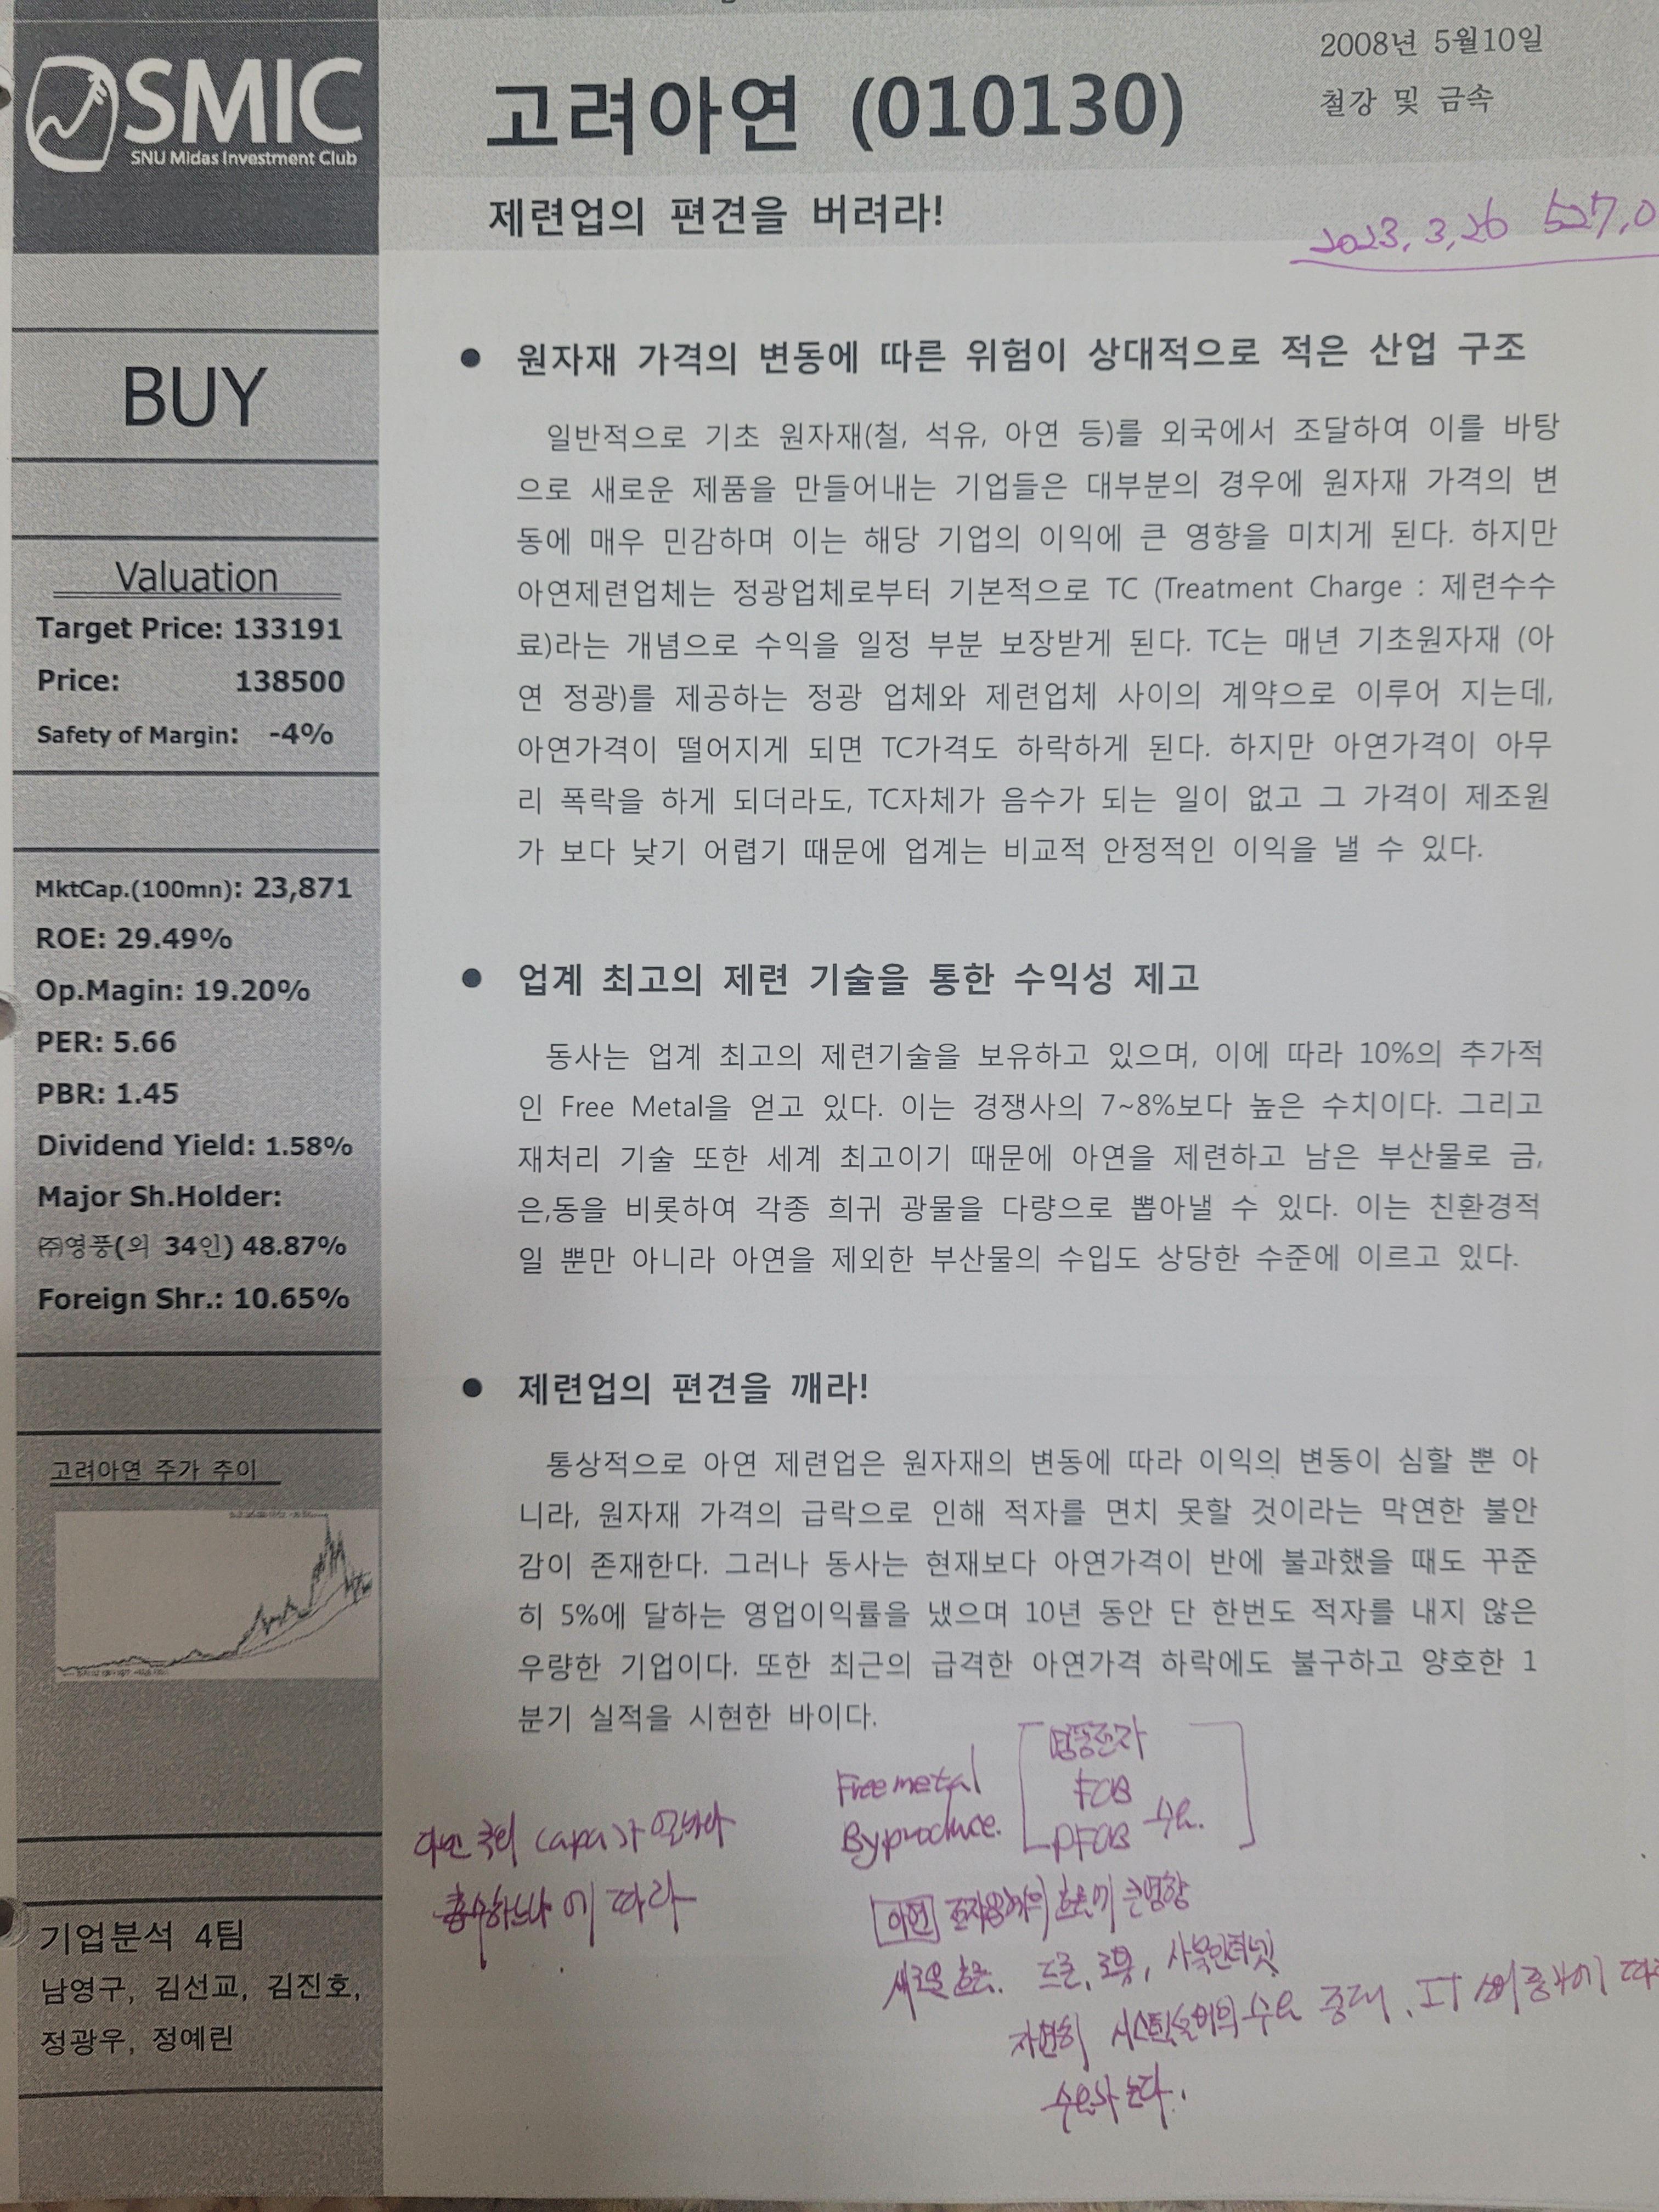 SMIC
SNU Midas Investment Club
고려아연 (010130)
2008년 5월10일
철강 및 금속
제련업의 편견을 버려라!
2023. 3. 26 527,0
BUY
Valuation
Target Price: 133191
Price: 138500
Safety of Margin: -4%
MktCap.(100mn): 23,871
ROE: 29.49%
Op.Magin: 19.20%
PER: 5.66
PBR: 1.45
Dividend Yield: 1.58%
Major Sh.Holder:
㈜영풍(외 34인) 48.87%
Foreign Shr.: 10.65%
고려아연 주가 추이
기업분석 4팀
남영구, 김선교, 김진호,
정광우, 정예린
● 원자재 가격의 변동에 따른 위험이 상대적으로 적은 산업 구조
일반적으로 기초 원자재(철, 석유, 아연 등)를 외국에서 조달하여 이를 바탕
으로 새로운 제품을 만들어내는 기업들은 대부분의 경우에 원자재 가격의 변
동에 매우 민감하며 이는 해당 기업의 이익에 큰 영향을 미치게 된다. 하지만
아연제련업체는 정광업체로부터 기본적으로 TC (Treatment Charge : 제련수수
료)라는 개념으로 수익을 일정 부분 보장받게 된다. TC는 매년 기초원자재 (아
연 정광)를 제공하는 정광 업체와 제련업체 사이의 계약으로 이루어 지는데,
아연가격이 떨어지게 되면 TC가격도 하락하게 된다. 하지만 아연가격이 아무
리 폭락을 하게 되더라도, TC자체가 음수가 되는 일이 없고 그 가격이 제조원
가 보다 낮기 어렵기 때문에 업계는 비교적 안정적인 이익을 낼 수 있다.
● 업계 최고의 제련 기술을 통한 수익성 제고
동사는 업계 최고의 제련기술을 보유하고 있으며, 이에 따라 10%의 추가적
인 Free Metal을 얻고 있다. 이는 경쟁사의 7~8%보다 높은 수치이다. 그리고
재처리 기술 또한 세계 최고이기 때문에 아연을 제련하고 남은 부산물로 금,
은,동을 비롯하여 각종 희귀 광물을 다량으로 뽑아낼 수 있다. 이는 친환경적
일 뿐만 아니라 아연을 제외한 부산물의 수입도 상당한 수준에 이르고 있다.
● 제련업의 편견을 깨라!
통상적으로 아연 제련업은 원자재의 변동에 따라 이익의 변동이 심할 뿐 아
니라, 원자재 가격의 급락으로 인해 적자를 면치 못할 것이라는 막연한 불안
감이 존재한다. 그러나 동사는 현재보다 아연가격이 반에 불과했을 때도 꾸준
히 5%에 달하는 영업이익률을 냈으며 10년 동안 단 한번도 적자를 내지 않은
우량한 기업이다. 또한 최근의 급격한 아연가격 하락에도 불구하고 양호한 1
분기 실적을 시현한 바이다.
Free metal
Byproduce.
수요.
에 따라
큰영향
드론, 로봇, 사물인터넷
자연히 수요 증대, IT